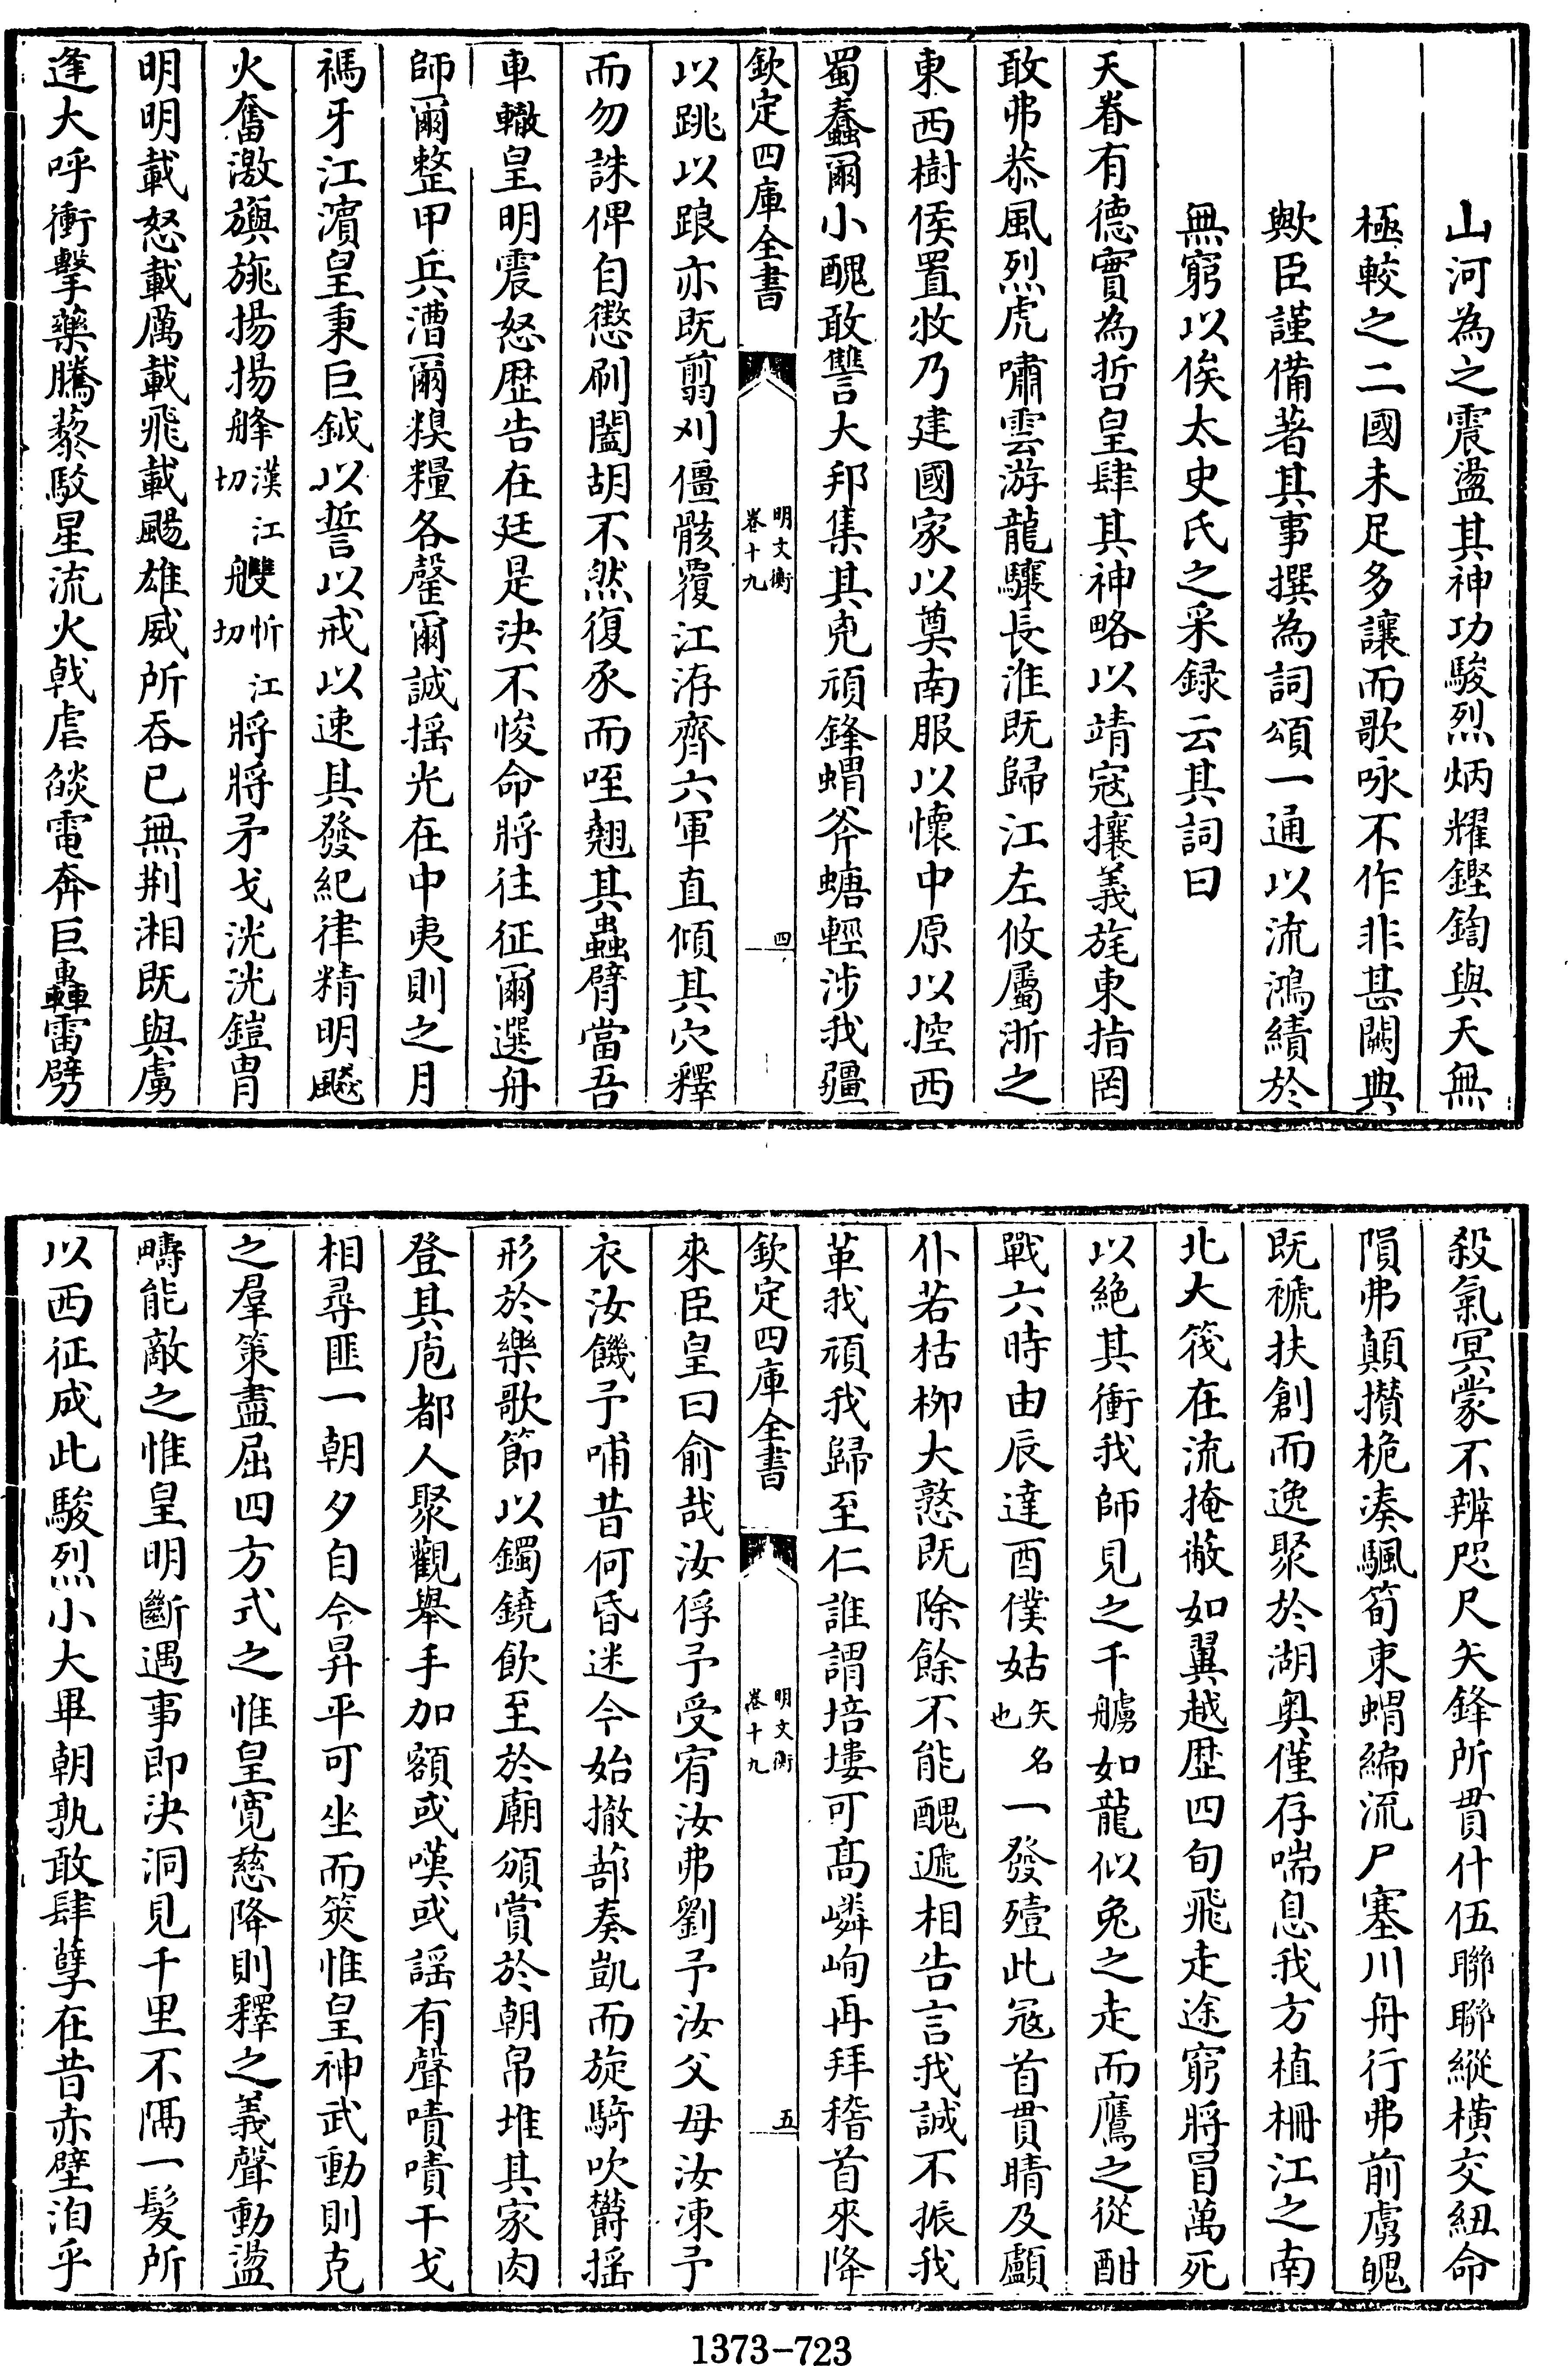 山河為之震盪其神功駿烈炳耀鏗鍧與天無
極較之二國未足多讓而歌咏不作非甚闕典
歟臣謹備著其事撰為詞頌一通以流鴻績於
無窮以俟太史氏之采録云其詞曰
天眷有德實為哲皇肆其神略以靖寇攘義旄東指罔
敢弗恭風烈虎嘯雲游龍驤長淮既歸江左攸屬浙之
東西樹侯置牧乃建國家以奠南服以懷中原以控西
蜀蠢爾小醜敢讐大邦集其兇頑鋒蝟斧螗輕涉我疆
欽定四庫全書 明文衡 卷十九 四
以跳以踉亦既翦刈僵骸覆江洊齊六軍直傾其穴釋
而勿誅俾自懲刷闔胡不然復豖而咥翹其蟲臂當吾
車轍皇明震怒歴告在廷是決不悛命將往征爾選舟
師爾整甲兵漕爾糗糧各罄爾誠摇光在中夷則之月
禡牙江濱皇秉巨鉞以誓以戒以速其發紀律精明飈
火奮激旟旐揚揚舽漢江切艭忻江切將將矛戈洸洸鎧胄
明明載怒載厲載飛載颺雄威所吞已無荆湘既與虜
逢大呼衝擊藥騰藜駮星流火戟虐燄電奔巨轟雷劈
殺氣冥蒙不辨咫尺矢鋒所貫什伍聯聯縱橫交紐命
隕弗顛攢桅湊颿筍束蝟編流尸塞川舟行弗前虜魄
既褫扶創而逸聚於湖奥僅存喘息我方植柵江之南
北大筏在流掩蔽如翼越歴四旬飛走途窮將冒萬死
以絶其衝我師見之千艣如龍似兔之走而鷹之從酣
戰六時由辰達酉僕姑矢名也一發殪此冦首貫睛及顱
仆若枯柳大憝既除餘不能醜遞相告言我誠不振我
革我頑我歸至仁誰謂培塿可髙嶙峋再拜稽首來降
欽定四庫全書 明文衡 卷十九 五
來臣皇曰俞哉汝俘予受宥汝弗劉予汝父母汝凍予
衣汝饑予哺昔何昏迷今始撤蔀奏凱而旋騎吹欎摇
形於樂歌節以鐲鐃飲至於廟頒賞於朝帛堆其家肉
登其庖都人聚觀舉手加額或嘆或謡有聲嘖嘖干戈
相尋匪一朝夕自今昇平可坐而筴惟皇神武動則克
之羣策盡屈四方式之惟皇寛慈降則釋之義聲動盪
疇能敵之惟皇明斷遇事即決洞見千里不隔一髪所
以西征成此駿烈小大畢朝孰敢肆孽在昔赤壁洎乎
1373-723